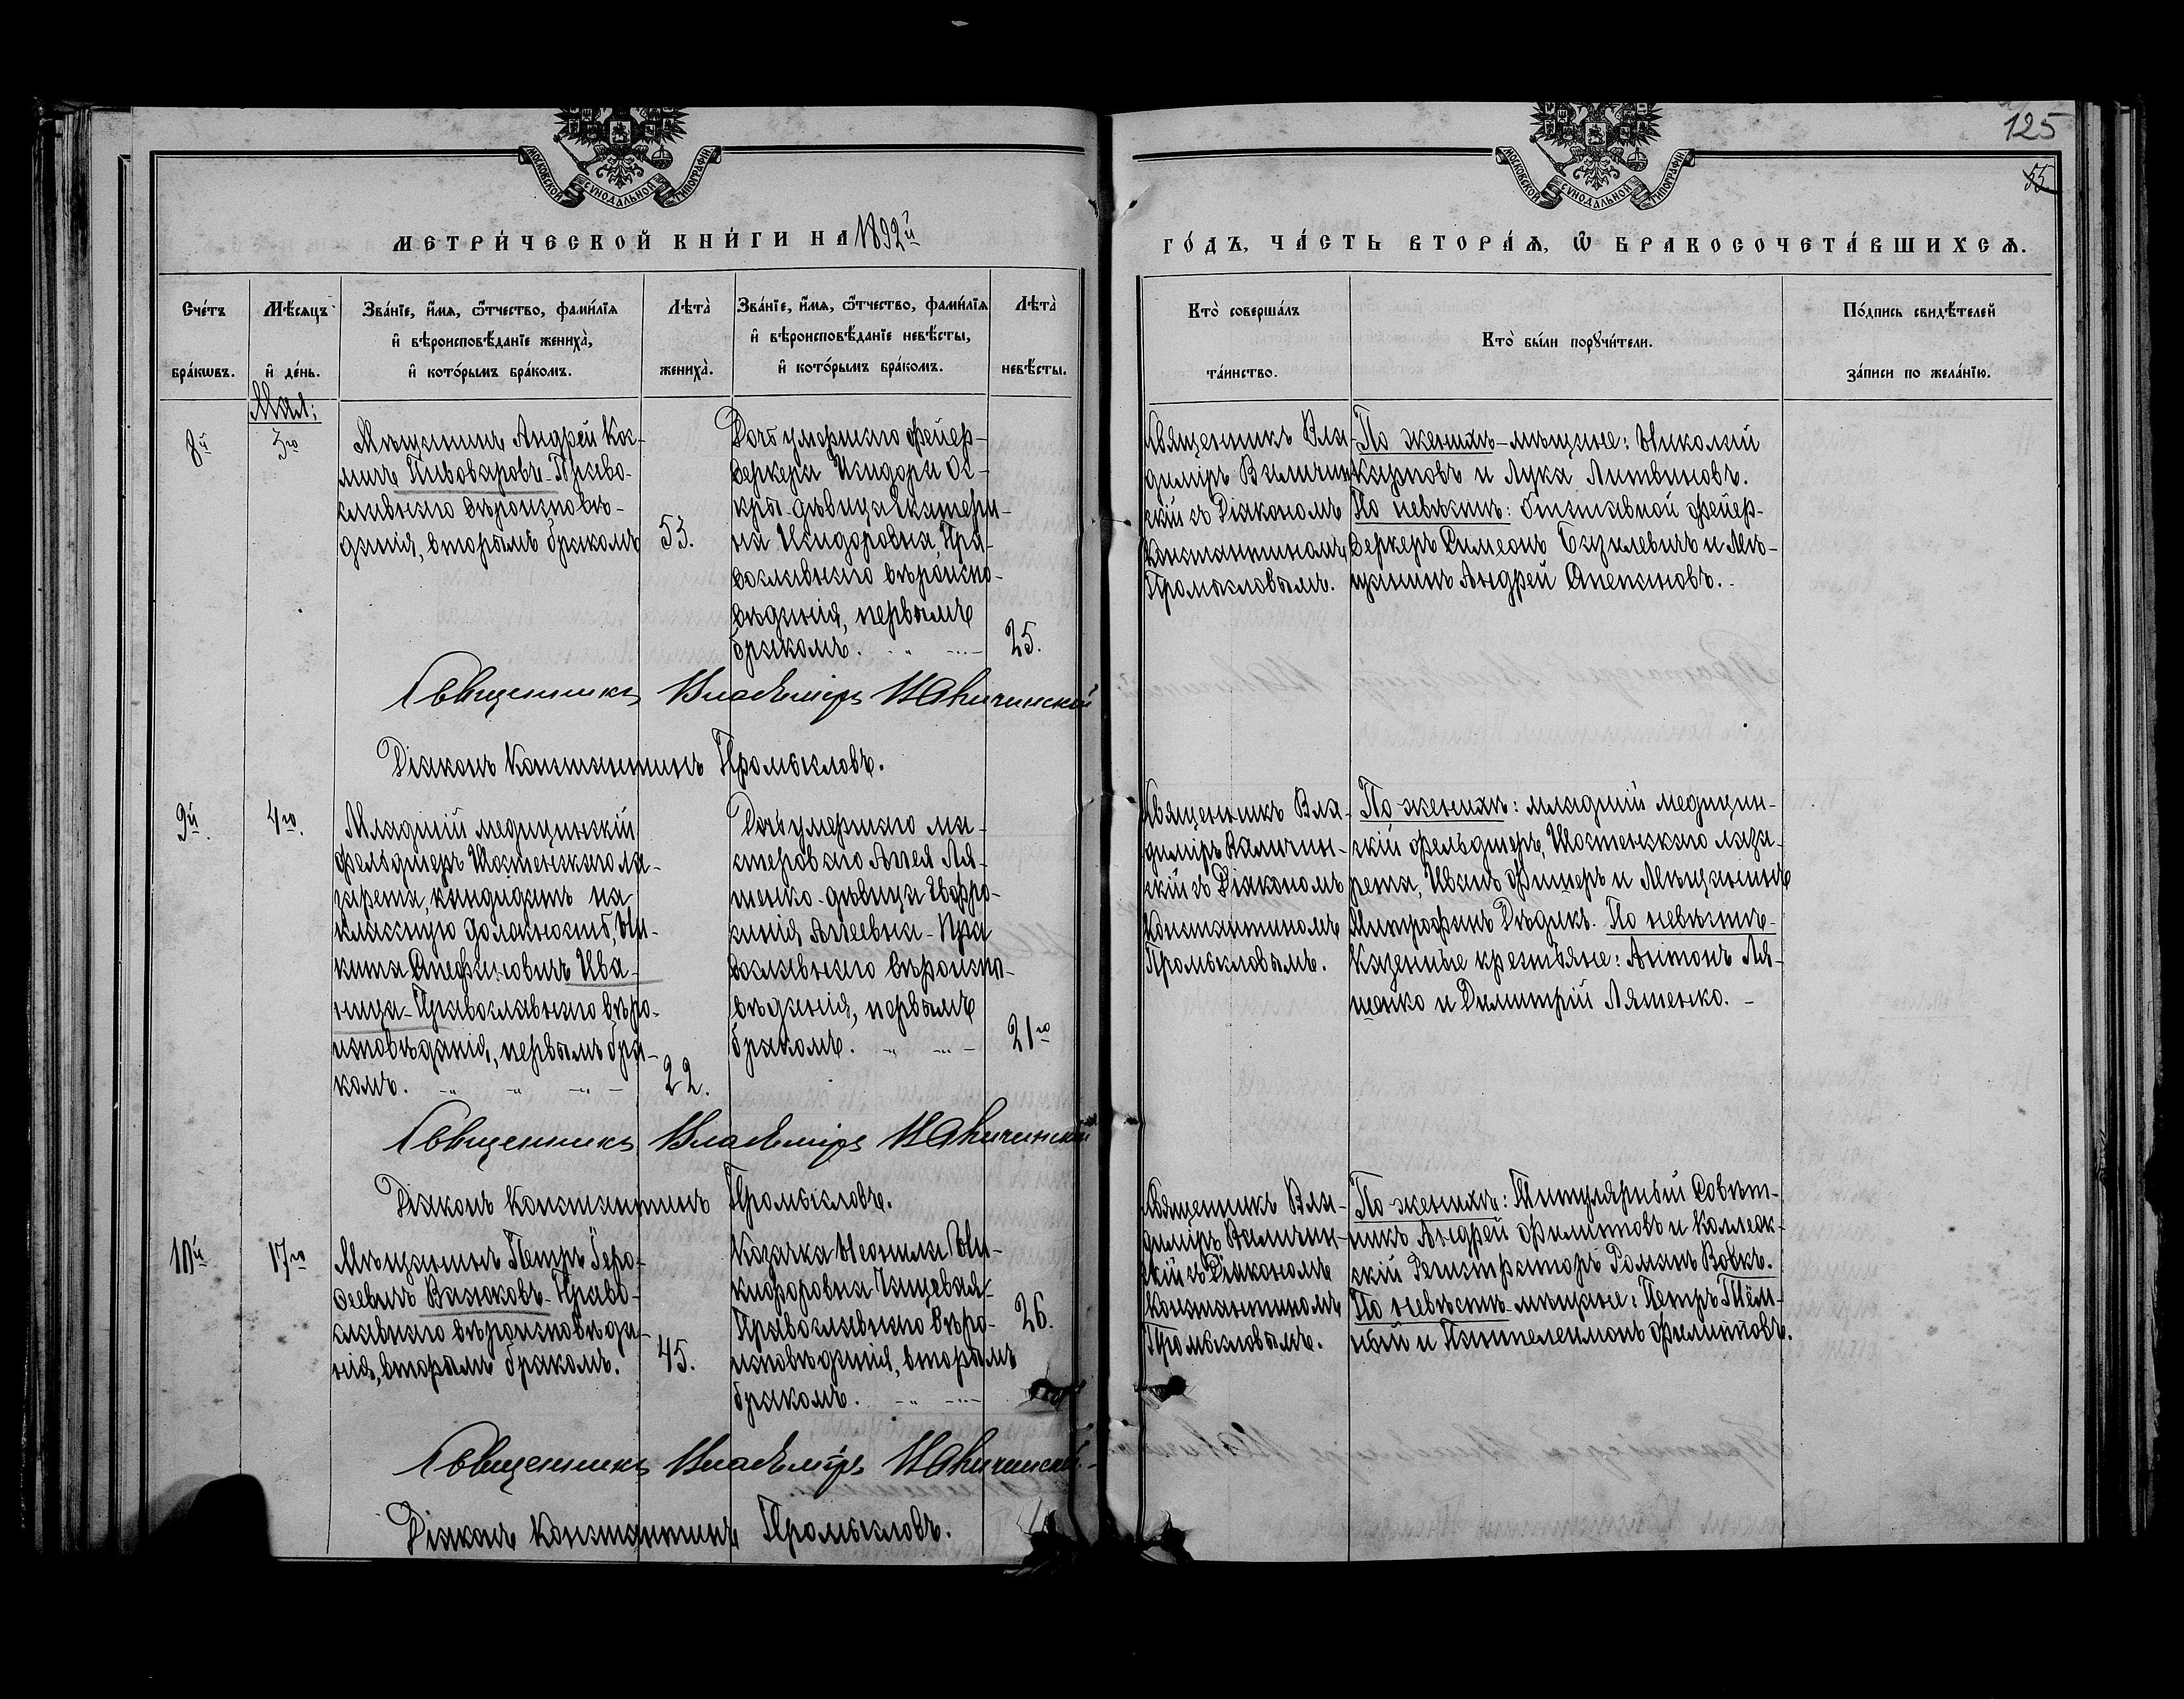 125
55
МОСКОВСКОЙ СѴНОДАЛЬНОЙ ТИПОГРАФІИ
МОСКОВСКОЙ СѴНОДАЛЬНОЙ ТИПОГРАФІИ
МЕТРИ́ЧЕСКОЙ КНИ́ГИ НА 1892й
ГО́ДЪ, ЧА́СТЬ ВТОРА́Ѧ, Ѡ҆ БРАКОСОЧЕТА́ВШИХСѦ.
Сче́тъ
бра́кѡвъ.
Мѣ́сяцъ
и҆ де́нь.
Зва́нїе, и҆́мя, ѻ҆́тчество, фами́лїя
и҆ вѣроисповѣ́данїе жениха̀,
и҆ кото́рымъ бра́комъ.
Лѣта̀
жениха̀.
Зва́нїе, и҆́мя, ѻ҆́тчество, фами́лїя
и҆ вѣроисповѣ́данїе невѣ́сты,
и҆ кото́рымъ бра́комъ.
Лѣта̀
невѣ́сты.
Кто̀ соверша́лъ
та́инство.
Кто̀ бы́ли порꙋчи́тели.
По́дпись свидѣ́телей
за́писи по жела́нїю.
Мая:
8й
3го
Мѣщанинъ Андрей Кос-
мичъ Пивоваровъ-Право-
славнаго вѣроисповѣ-
данія, вторымъ бракомъ
53.
Дочь умершаго фейер-
веркера Исидора Ос-
кры-дѣвица Екатери-
на Исидоровна, Пра-
вославнаго вѣроиспо-
вѣданія, первымъ
бракомъ.
25.
Священникъ Вла-
диміръ
скій съ Діакономъ
Константиномъ
Промысловымъ.
По женихѣ-мѣщане: Николай
Карповъ и Лука Литвиновъ.
По невѣстѣ: отставной фейер-
веркеръ Симеонъ Базилевичъ и Мѣ-
щанинъ Андрей
Священникъ Владиміръ
Діаконъ Константинъ Промысловъ.
9й.
4го.
Младшій медицинскій
фельдшеръ Шостенскаго ла-
зарета, кандидатъ на
классную должность, Ни-
кита Ива-
ница-Православнаго вѣро-
исповѣданія, первымъ бра-
комъ.
22.
Дочь умершаго ма-
стероваго Алея Ля-
шенко-дѣвица Евфро-
синія Алеевна-Пра
вославнаго вѣроиспо-
вѣданія, первымъ
бракомъ.
21го
Священникъ Вла-
диміръ
скій съ Діакономъ
Константиномъ
Промысловымъ.
По женихѣ: младшій медицин-
скій фельдшеръ, Шостенскаго лаза-
рета, Иванъ Фишеръ и Мѣщанинъ
Митрофанъ Дѣдикъ. По невѣстѣ-
Казенные крестьяне: Антонъ Ля-
шенко и Димитрій Ляшенко.
Священникъ Владиміръ
Діаконъ Константинъ Промысловъ.
10й
17го
Мѣщанинъ Петръ Геро-
феевичъ Вазюковъ-Право-
славнаго вѣроисповѣда-
нія, вторымъ бракомъ.
45.
Козачка Неонила Ни-
кифоровна Пищевая-
Православнаго вѣро-
исповѣданія, вторымъ
бракомъ.
26.
Священникъ Вла-
диміръ
скій съ Діакономъ
Константиномъ
Промысловымъ.
По женихѣ: Титулярный Совѣт-
никъ Андрей Филиповъ и Коллеж-
скій Регистраторъ Романъ Вовкъ.
По невѣстѣ-мѣщане: Петръ Тём-
ный и Пантелеимонъ Филиповъ.
Священникъ Владиміръ
Діаконъ Константинъ Промысловъ.